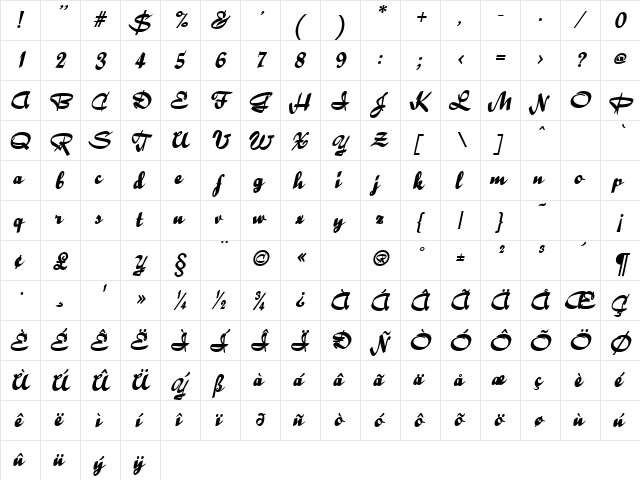 ! " # $ % & ' ( ) * + , - . / 0
1 2 3 4 5 6 7 8 9 : ; < = > ? @
A B C D E F G H I J K L M N O P
Q R S T U V W X Y Z [ \ ] ^ `
a b c d e f g h i j k l m n o p
q r s t u v w x y z { | } ~ ¡
¢ £ Y § ¨ © « ® ° ± ² ³ ´ ¶
· ¸ ' » ¼ ½ ¾ ¿ À Á Â Ã Ä Å Æ Ç
È É Ê Ë Ì Í Î Ï Ð Ñ Ò Ó Ô Õ Ö Ø
Ù Ú Û Ü Ý ß à á â ã ä å æ ç è é
ê ë ì í î ï ð ñ ò ó ô õ ö ø ù ú
û ü ý ÿ